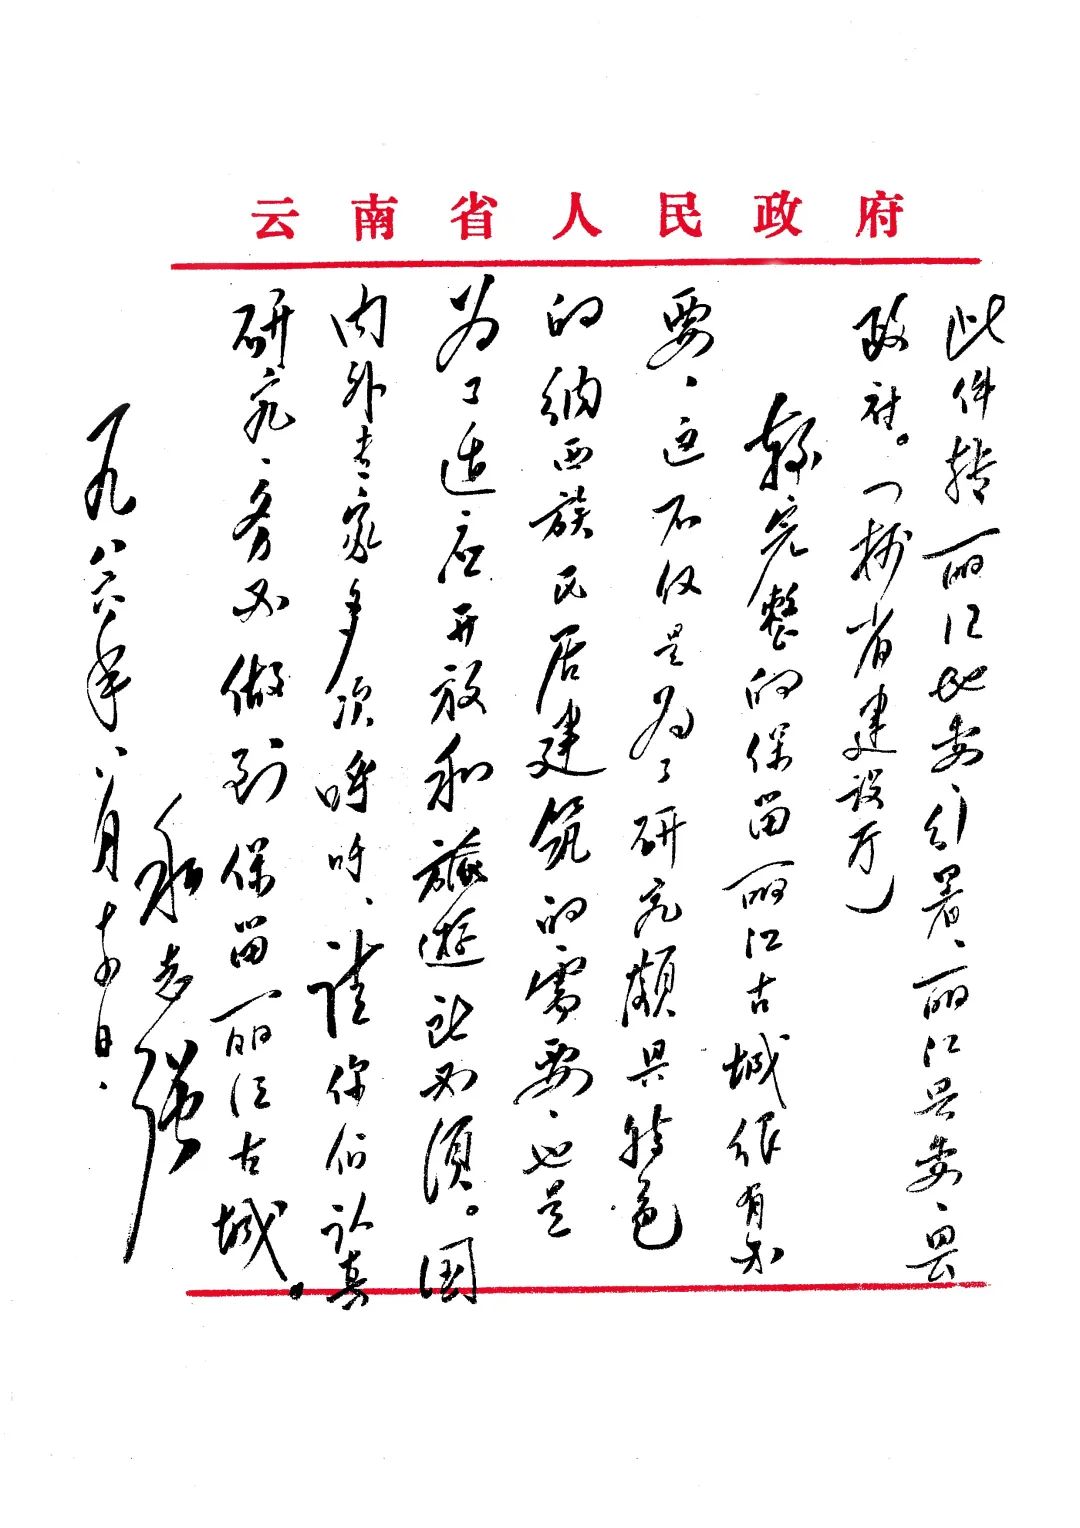 云南省人民政府
此件转丽江地委、行署、丽江县委、县
政府。（抄省建设厅）
较完整的保留丽江古城很有必
要、这不仅是为了研究颇具特色
的纳西族民居建筑的需要、也是
为了适应开放和旅游所必须。国
内外专家多次呼吁、请你们认真
研究、务必做到保留丽江古城。
和志强
一九八六年八月十五日